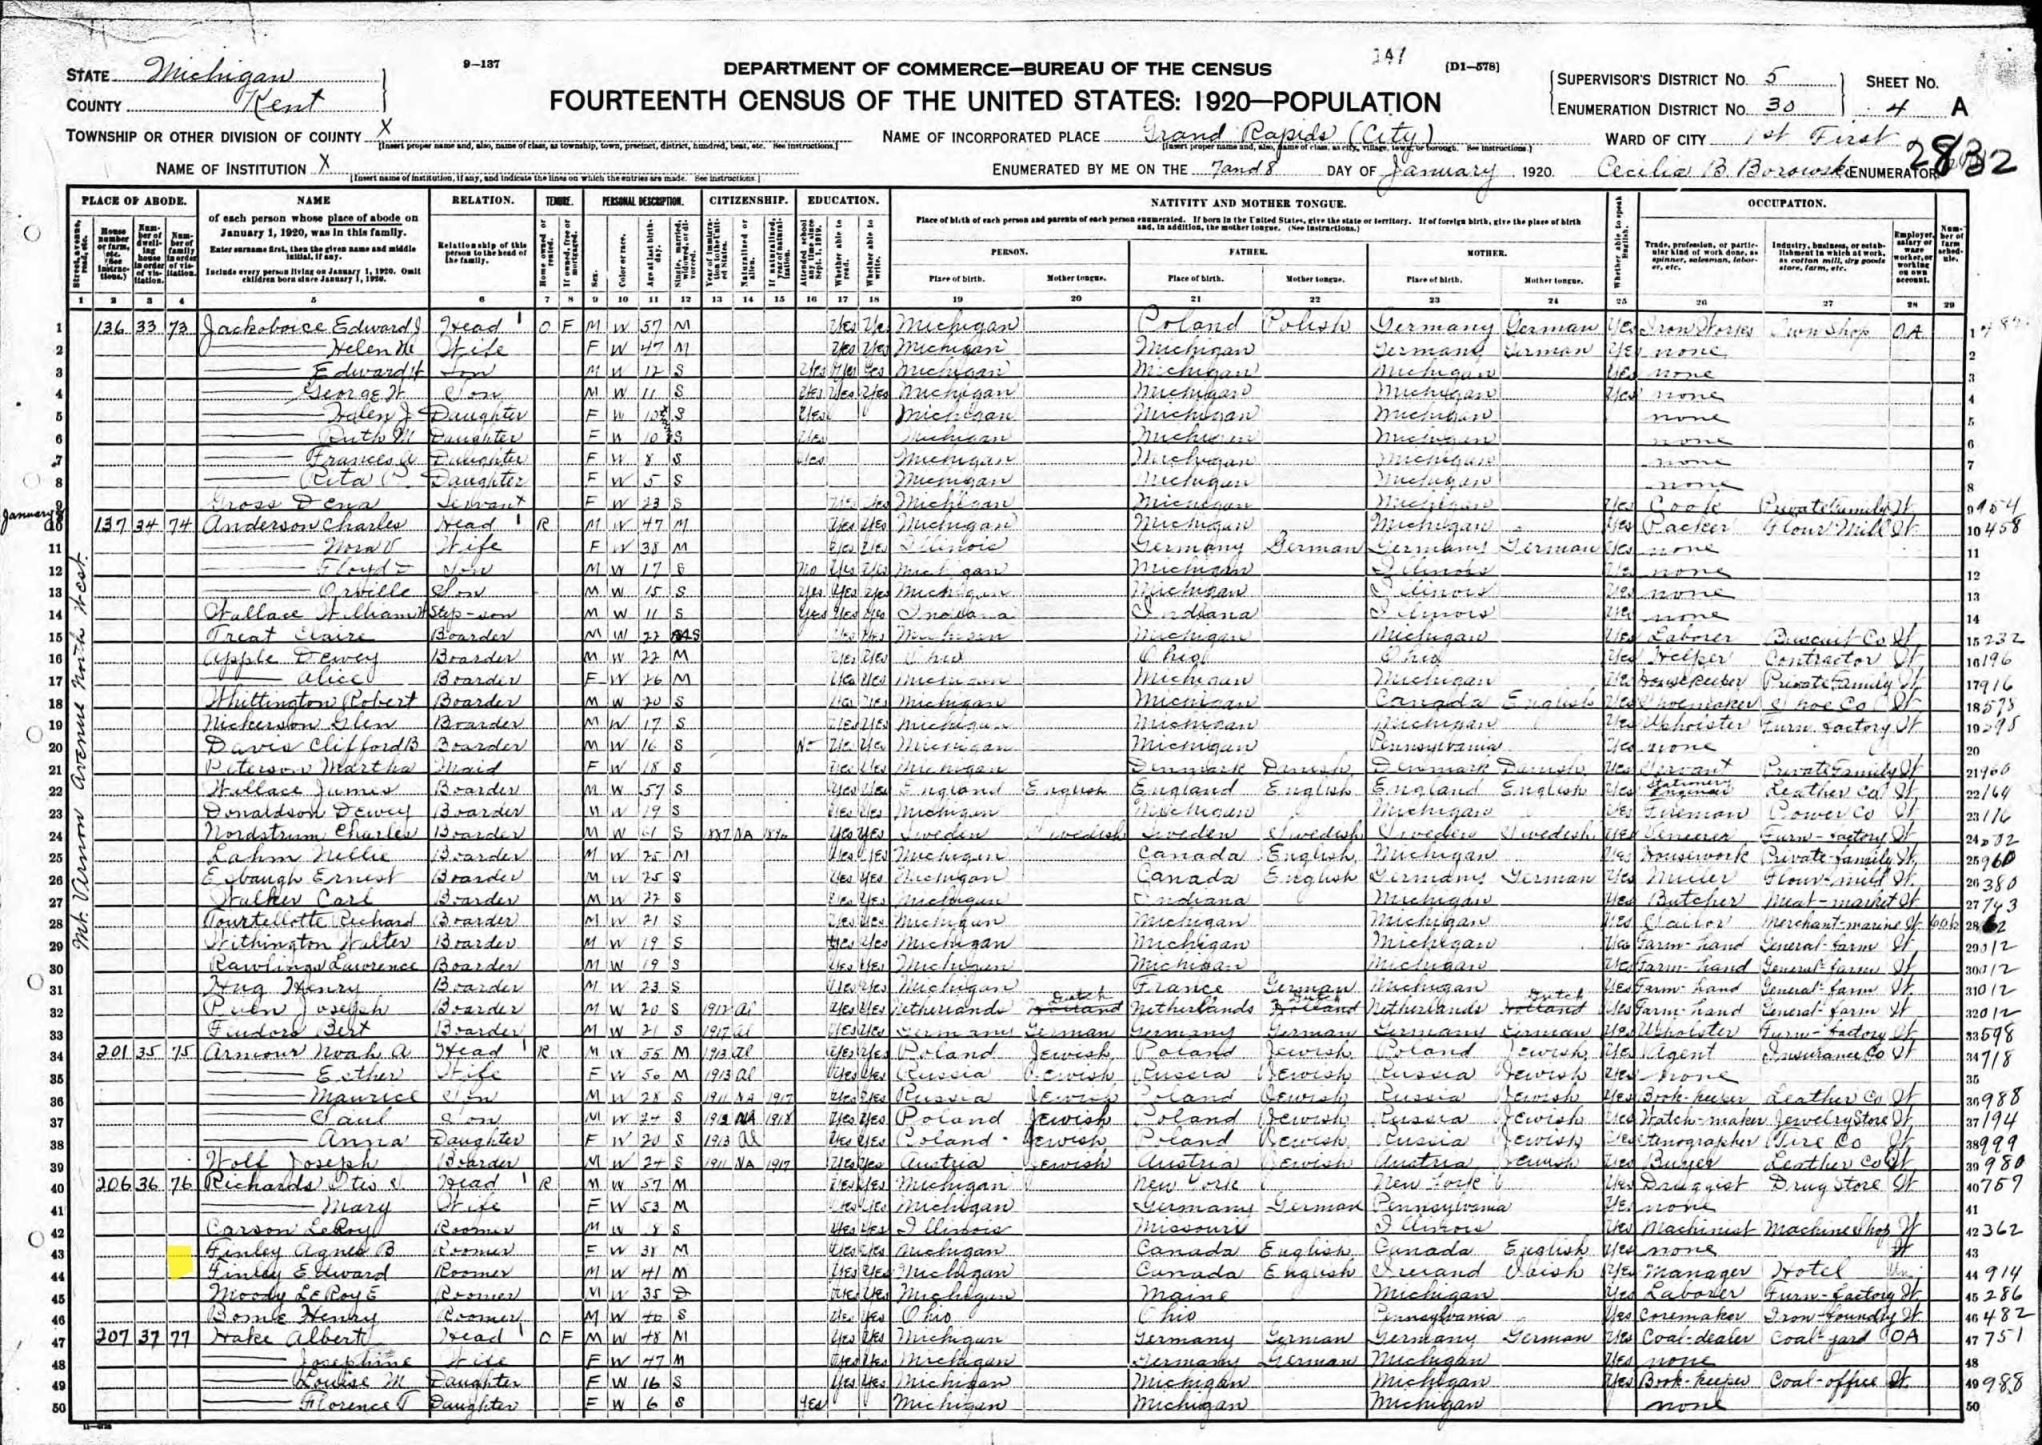 STATE Michigan
COUNTY Kent
9-137
DEPARTMENT OF COMMERCE—BUREAU OF THE CENSUS
[D1-578]
FOURTEENTH CENSUS OF THE UNITED STATES: 1920—POPULATION
SUPERVISOR'S DISTRICT No. 5
ENUMERATION DISTRICT No. 30
SHEET No. 4 A
TOWNSHIP OR OTHER DIVISION OF COUNTY X
NAME OF INCORPORATED PLACE Grand Rapids (City)
WARD OF CITY 1st First
NAME OF INSTITUTION X
ENUMERATED BY ME ON THE 7 and 8 DAY OF January, 1920.
Cecilia B. Borowski ENUMERATOR
PLACE OF ABODE. NAME RELATION. TENURE. PERSONAL DESCRIPTION. CITIZENSHIP. EDUCATION. NATIVITY AND MOTHER TONGUE. OCCUPATION.
of each person whose place of abode on January 1, 1920, was in this family.
Enter surname first, then the given name and middle initial, if any.
Include every person living on January 1, 1920. Omit children born since January 1, 1920.
Relationship of this person to the head of the family.
Place of birth of each person and parents of each person enumerated. If born in the United States, give the state or territory. If of foreign birth, give the place of birth and, in addition, the mother tongue. (See Instructions.)
PERSON. FATHER. MOTHER.
Place of birth. Mother tongue. Place of birth. Mother tongue. Place of birth. Mother tongue.
1 2 3 4 5 6 7 8 9 10 11 12 13 14 15 16 17 18 19 20 21 22 23 24 25 26 27 28 29
Mt. Vernon Avenue North West.
1 136 33 73 Jackoboice Edward J Head O F M W 57 M Yes Yes Michigan Poland Polish Germany German Yes Iron Works Own Shop OA
2 Helen M Wife F W 47 M Yes Yes Michigan Michigan Germany German Yes none
3 Edward Son M W 12 S Yes Yes Yes Michigan Michigan Michigan Yes none
4 George W Son M W 11 S Yes Yes Yes Michigan Michigan Michigan Yes none
5 Helen J Daughter F W 10 S Yes Michigan Michigan Michigan none
6 Ruth M Daughter F W 10 S Yes Michigan Michigan Michigan none
7 Frances A Daughter F W 8 S Yes Michigan Michigan Michigan none
8 Rita Daughter F W 5 S Michigan Michigan Michigan none
9 Gross Dena Servant F W 23 S Yes Yes Michigan Michigan Michigan Yes Cook Private Family W
10 137 34 74 Anderson Charles Head R M W 47 M Yes Yes Michigan Michigan Michigan Yes Packer Flour Mill W 458
11 Nora V Wife F W 38 M Yes Yes Illinois Germany German Germany German Yes none
12 Floyd Son M W 17 S No Yes Yes Michigan Michigan Illinois Yes none
13 Orville Son M W 15 S Yes Yes Yes Michigan Michigan Illinois Yes none
14 Wallace William Step-son M W 11 S Yes Yes Yes Indiana Indiana Illinois Yes none
15 Treat Claire Boarder M W 22 S Yes Yes Michigan Michigan Michigan Yes Laborer Biscuit Co W 232
16 Apple Dewey Boarder M W 22 M Yes Yes Ohio Ohio Ohio Yes Helper Contractor W 196
17 Alice Boarder F W 26 M Yes Yes Michigan Michigan Michigan Yes Housekeeper Private Family W 916
18 Whittington Robert Boarder M W 20 S Yes Yes Michigan Michigan Canada English Yes Shoemaker Shoe Co W 578
19 Nickerson Glen Boarder M W 17 S Yes Yes Michigan Michigan Michigan Yes Upholster Furn. factory W
20 Davis Clifford B Boarder M W 16 S No Yes Yes Michigan Michigan Pennsylvania Yes none
21 Peterson Martha Maid F W 18 S Yes Yes Michigan Denmark Danish Denmark Danish Yes Servant Private Family W 960
22 Wallace James Boarder M W 57 S Yes Yes England English England English England English Yes Stationary Engineer Leather Co W 164
23 Donaldson Dewey Boarder M W 19 S Yes Yes Michigan Michigan Michigan Yes Fireman Power Co W 116
24 Nordstrum Charles Boarder M W 61 S 1887 NA 1896 Yes Yes Sweden Swedish Sweden Swedish Sweden Swedish Yes Veneerer Furn-factory W
25 Lahm Nellie Boarder M W 25 M Yes Yes Michigan Canada English Michigan Yes Housework Private-family W 960
26 Esbaugh Ernest Boarder M W 25 S Yes Yes Michigan Canada English Germany German Yes Miller Flour-mill W 380
27 Walker Carl Boarder M W 22 S Yes Yes Michigan Indiana Michigan Yes Butcher Meat-market W 743
28 Tourtellotte Richard Boarder M W 21 S Yes Yes Michigan Michigan Michigan Yes Sailor Merchant-marine W
29 Withington Walter Boarder M W 19 S Yes Yes Michigan Michigan Michigan Yes Farm-hand General-farm W 012
30 Rawlings Lawrence Boarder M W 19 S Yes Yes Michigan Michigan Michigan Yes Farm-hand General-farm W 012
31 Hug Henry Boarder M W 23 S Yes Yes Michigan France German Michigan Yes Farm-hand General-farm W 012
32 Joseph Boarder M W 20 S 1912 Al Yes Yes Netherlands Dutch Netherlands Dutch Netherlands Dutch Yes Farm-hand General-farm W 012
33 Bert Boarder M W 21 S 1917 Al Yes Yes Germany German Germany German Germany German Yes Upholster Furn-factory W 598
34 201 35 75 Armour Noah A Head R M W 55 M 1913 Al Yes Yes Poland Jewish Poland Jewish Poland Jewish Yes Agent Insurance Co W 718
35 Esther Wife F W 50 M 1913 Al Yes Yes Russia Jewish Russia Jewish Russia Jewish Yes none
36 Maurice Son M W 28 S 1911 NA 1917 Yes Yes Russia Jewish Poland Jewish Russia Jewish Yes Book-keeper Leather Co W 988
37 Saul Son M W 24 S 1912 NA 1918 Yes Yes Poland Jewish Poland Jewish Russia Jewish Yes Watch-maker Jewelry Store W 194
38 Anna Daughter F W 20 S 1913 Al Yes Yes Poland Jewish Poland Jewish Russia Jewish Yes Stenographer Wire Co W 999
39 Wolf Joseph Boarder M W 24 S 1911 NA 1917 Yes Yes Austria Jewish Austria Jewish Austria Jewish Yes Buyer Leather Co W 980
40 206 36 76 Richards Otis S Head R M W 57 M Yes Yes Michigan New York New York Yes Druggist Drug Store W 757
41 Mary Wife F W 53 M Yes Yes Michigan Germany German Pennsylvania Yes none
42 Carson LeRoy Roomer M W S Yes Yes Illinois Missouri Illinois Yes Machinist Machine Shop W 362
43 Finley Agnes B Roomer F W 38 M Yes Yes Michigan Canada English Canada English Yes none W
44 Finley Edward Roomer M W 41 M Yes Yes Michigan Canada English Ireland Irish Yes Manager Hotel 914
45 Moody LeRoy E Roomer M W 35 D Yes Yes Michigan Maine Michigan Yes Laborer Furn-factory W 286
46 Henry Roomer M W 40 S Yes Yes Ohio Ohio Pennsylvania Yes Coremaker Iron-foundry W 482
47 207 37 77 Hake Albert Head O F M W 48 M Yes Yes Michigan Germany German Germany German Yes Coal-dealer Coal-yard OA 751
48 Josephine Wife F W 47 M Yes Yes Michigan Germany German Michigan Yes none
49 Louise M Daughter F W 16 S Yes Yes Michigan Michigan Michigan Yes Book-keeper Coal-office W 988
50 Florence T Daughter F W 6 S Yes Michigan Michigan Michigan none